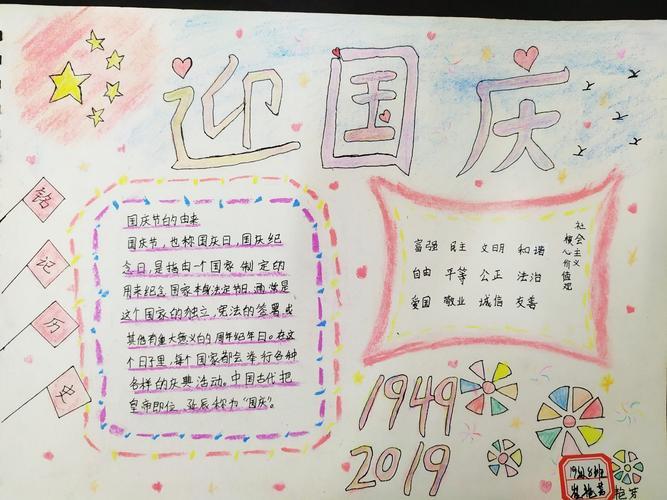 迎国庆
铭记历史
国庆节的由来
国庆节,也称国庆日,国庆纪
念日,是指由一个国家制定的
用来纪念国家本身法定节日,通常是
这个国家的独立、宪法的签署,或
其他有重大意义的周年纪年日。在这
个日子里,每个国家都会举行各种
各样的庆典活动。中国古代把
皇帝即位、诞辰称为“国庆”。
社会主义
核心价值观
富强 民主 文明 和谐
自由 平等 公正 法治
爱国 敬业 诚信 友善
1949
2019